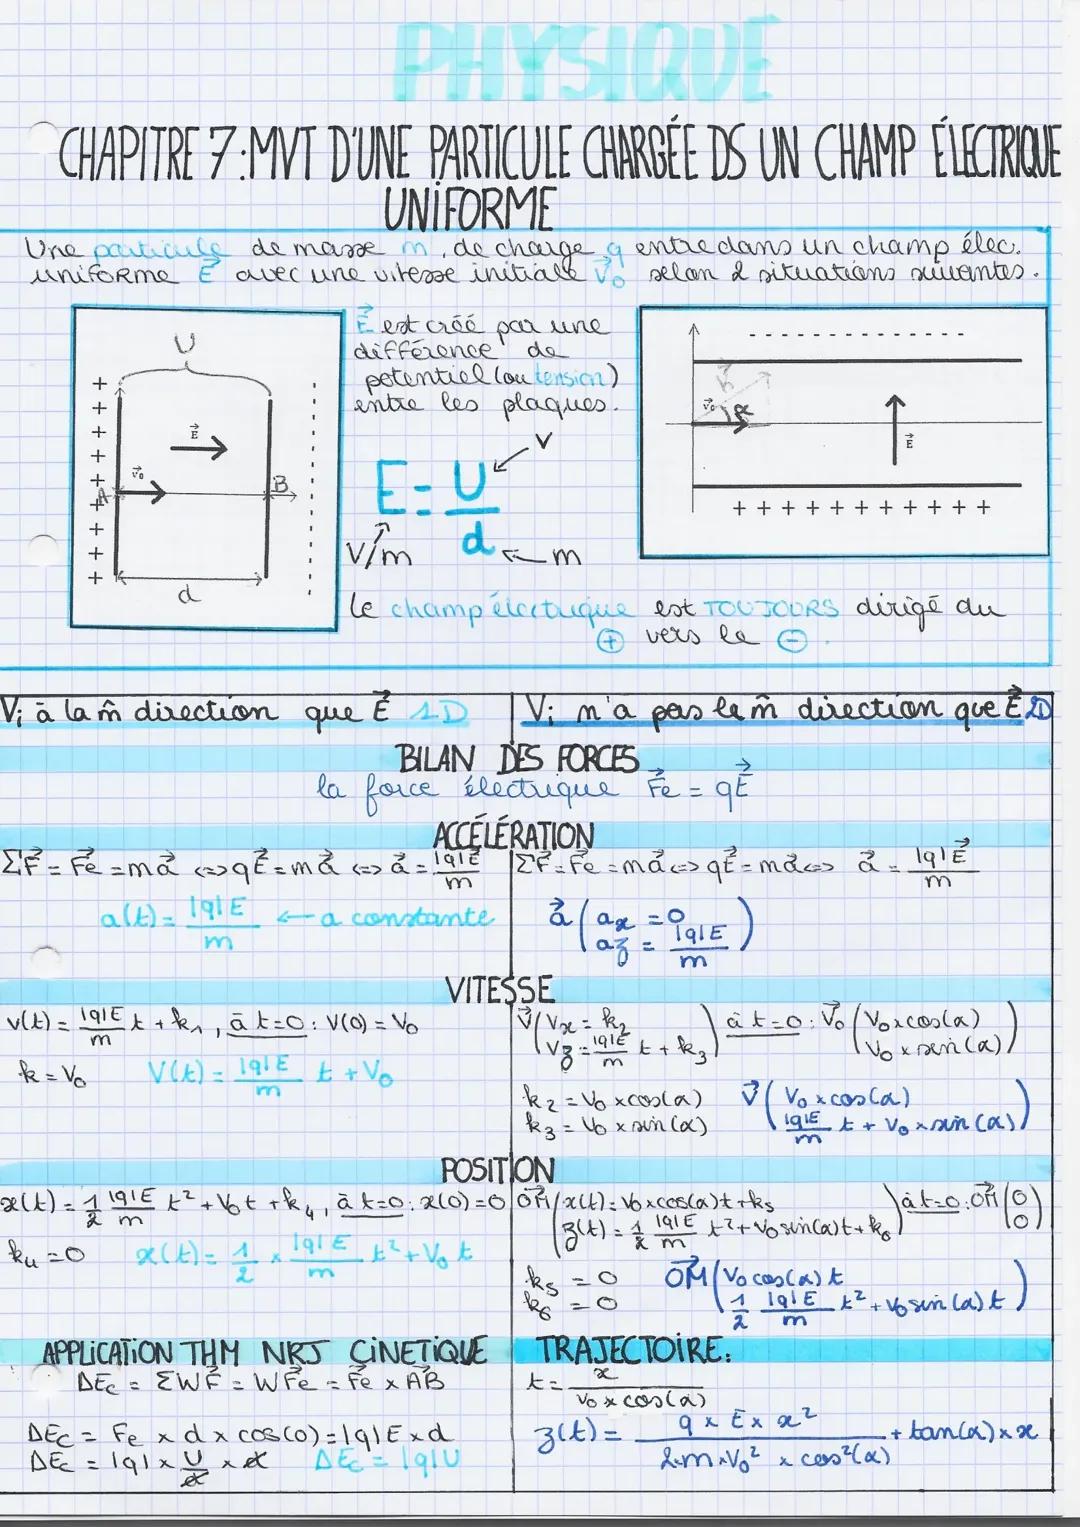 PHYSIQUE
CHAPITRE 7: MVT D'UNE PARTICULE CHARGÉE DS UN CHAMP ÉLECTRIQUE
UNIFORME
Une particule de masse m, de charge q entre dans un champ élec.
uniforme E⃗ avec une vitesse initiale v⃗₀ selon 2 situations suivantes.
U
+ + + + + + + + +
E⃗
v⃗₀
A
B
d
E⃗ est créé par une
différence de
potentiel (ou tension)
entre les plaques.
E = U/d
V
V/m
m
- - - - - - - - - - - - -
v⃗₀
α
E⃗
+ + + + + + + + + + +
Le champ électrique est TOUJOURS dirigé du
⊕ vers le ⊖.
Vi à la m̂ direction que E⃗ 1D
Vi n'a pas la m̂ direction que E⃗ 2D
BILAN DES FORCES
la force électrique F⃗e = qE⃗
ACCÉLÉRATION
ΣF⃗ = F⃗e = ma⃗ <=> qE⃗ = ma⃗ <=> a⃗ = |q|E⃗/m
a(t) = |q|E/m ← a constante
ΣF⃗ = F⃗e = ma⃗ <=> qE⃗ = ma⃗ <=> a⃗ = |q|E⃗/m
a⃗ ( ax = 0
az = |q|E/m )
VITESSE
v(t) = |q|E/m t + k₁, à t=0 : V(0) = V₀
k = V₀ V(t) = |q|E/m t + V₀
V⃗ ( Vx = k₂ ) à t=0 : V⃗₀ ( V₀ x cos(α) )
( Vz = |q|E/m t + k₃ ) ( V₀ x sin(α) )
k₂ = V₀ x cos(α) V⃗ ( V₀ x cos(α)
k₃ = V₀ x sin(α) |q|E/m t + V₀ x sin(α) )
POSITION
x(t) = 1/2 |q|E/m t² + V₀t + k₄, à t=0 : x(0) = 0
k₄ = 0 x(t) = 1/2 x |q|E/m t² + V₀ t
OM⃗ ( x(t) = V₀ x cos(α) t + k₅ ) à t=0 : OM⃗ ( 0
( z(t) = 1/2 |q|E/m t² + V₀ sin(α) t + k₆ ) 0 )
k₅ = 0 OM⃗ ( V₀ cos(α) t
k₆ = 0 1/2 |q|E/m t² + V₀ sin(α) t )
APPLICATION THM NRJ CINETIQUE
ΔEc = ΣWF⃗ = WF⃗e = F⃗e x AB⃗
ΔEc = Fe x d x cos(0) = |q|E x d
ΔEc = |q| x U/d x d ΔEc = |q|U
TRAJECTOIRE:
t = x/(V₀ x cos(α))
z(t) = q x E x x²/(2 x m x V₀² x cos²(α)) + tan(α) x x